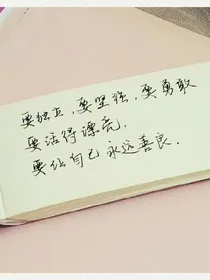 要独立，要坚强，要勇敢
要活得漂亮，
要让自己永远善良。